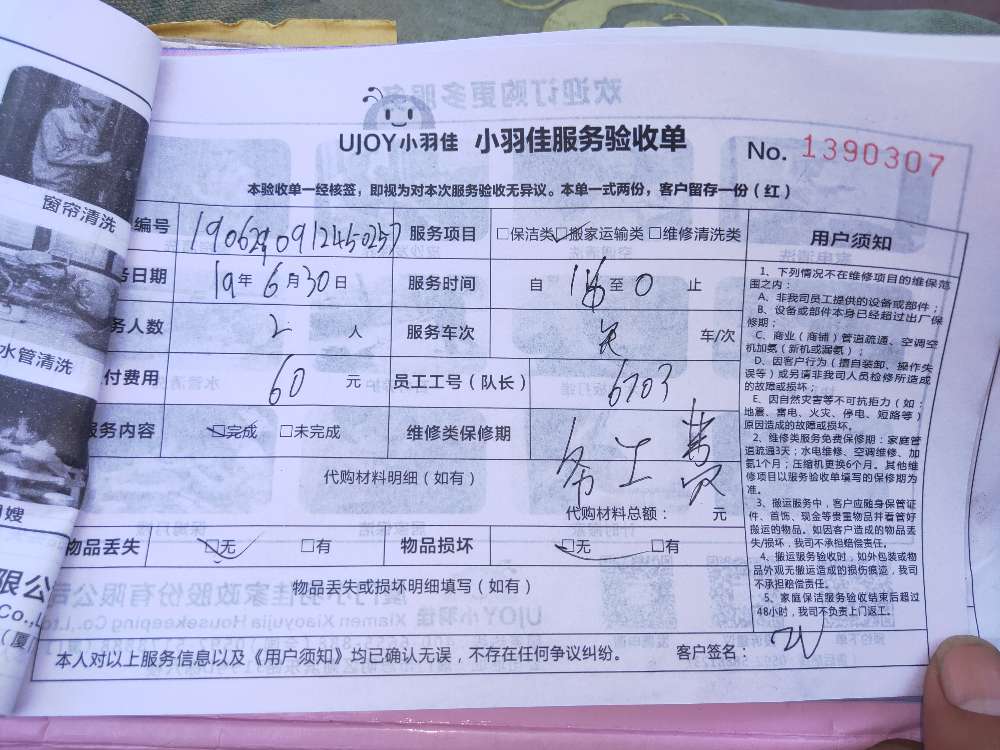 欢迎订购更多服务
UJOY小羽佳 小羽佳服务验收单
No. 1390307
本验收单一经核签，即视为对本次服务验收无异议。本单一式两份，客户留存一份（红）
编号 1906290912450257 服务项目 □保洁类 □搬家运输类 □维修清洗类
务日期 19年6月30日 服务时间 自 至 0 止
务人数 2 人 服务车次 车/次
付费用 60 元 员工工号（队长） 6703
服务内容 □完成 □未完成 维修类保修期
代购材料明细（如有）
代购材料总额： 元
物品丢失 □无 □有 物品损坏 □无 □有
物品丢失或损坏明细填写（如有）
本人对以上服务信息以及《用户须知》均已确认无误，不存在任何争议纠纷。 客户签名：
用户须知
1、下列情况不在维修项目的维保范
围之内：
A、非我司员工提供的设备或部件；
B、设备或部件本身已经超过出厂保
修期；
C、商业（商铺）管道疏通、空调空
机加氨（新机或漏氨）；
D、因客户行为（擅自装卸、操作失
误等）或另请非我司人员检修所造成
的故障或损坏；
E、因自然灾害等不可抗拒力（如：
地震、雷电、火灾、停电、短路等）
原因造成的故障或损坏。
2、维修类服务免费保修期：家庭管
道疏通3天；水电维修、空调维修、加
氨1个月；压缩机更换6个月。其他维
修项目以服务验收单填写的保修期为
准。
3、搬运服务中，客户应随身保管证
件、首饰、现金等贵重物品并看管好
搬运的物品。如因客户造成的物品丢
失/损坏，我司不承担赔偿责任。
4、搬运服务验收时，如外包装或物
品外观无搬运造成的损伤痕迹，我司
不承担赔偿责任。
5、家庭保洁服务验收结束后超过
48小时，我司不负责上门返工。
窗帘清洗
水管清洗
嫂
限公
Co.,L
（厦